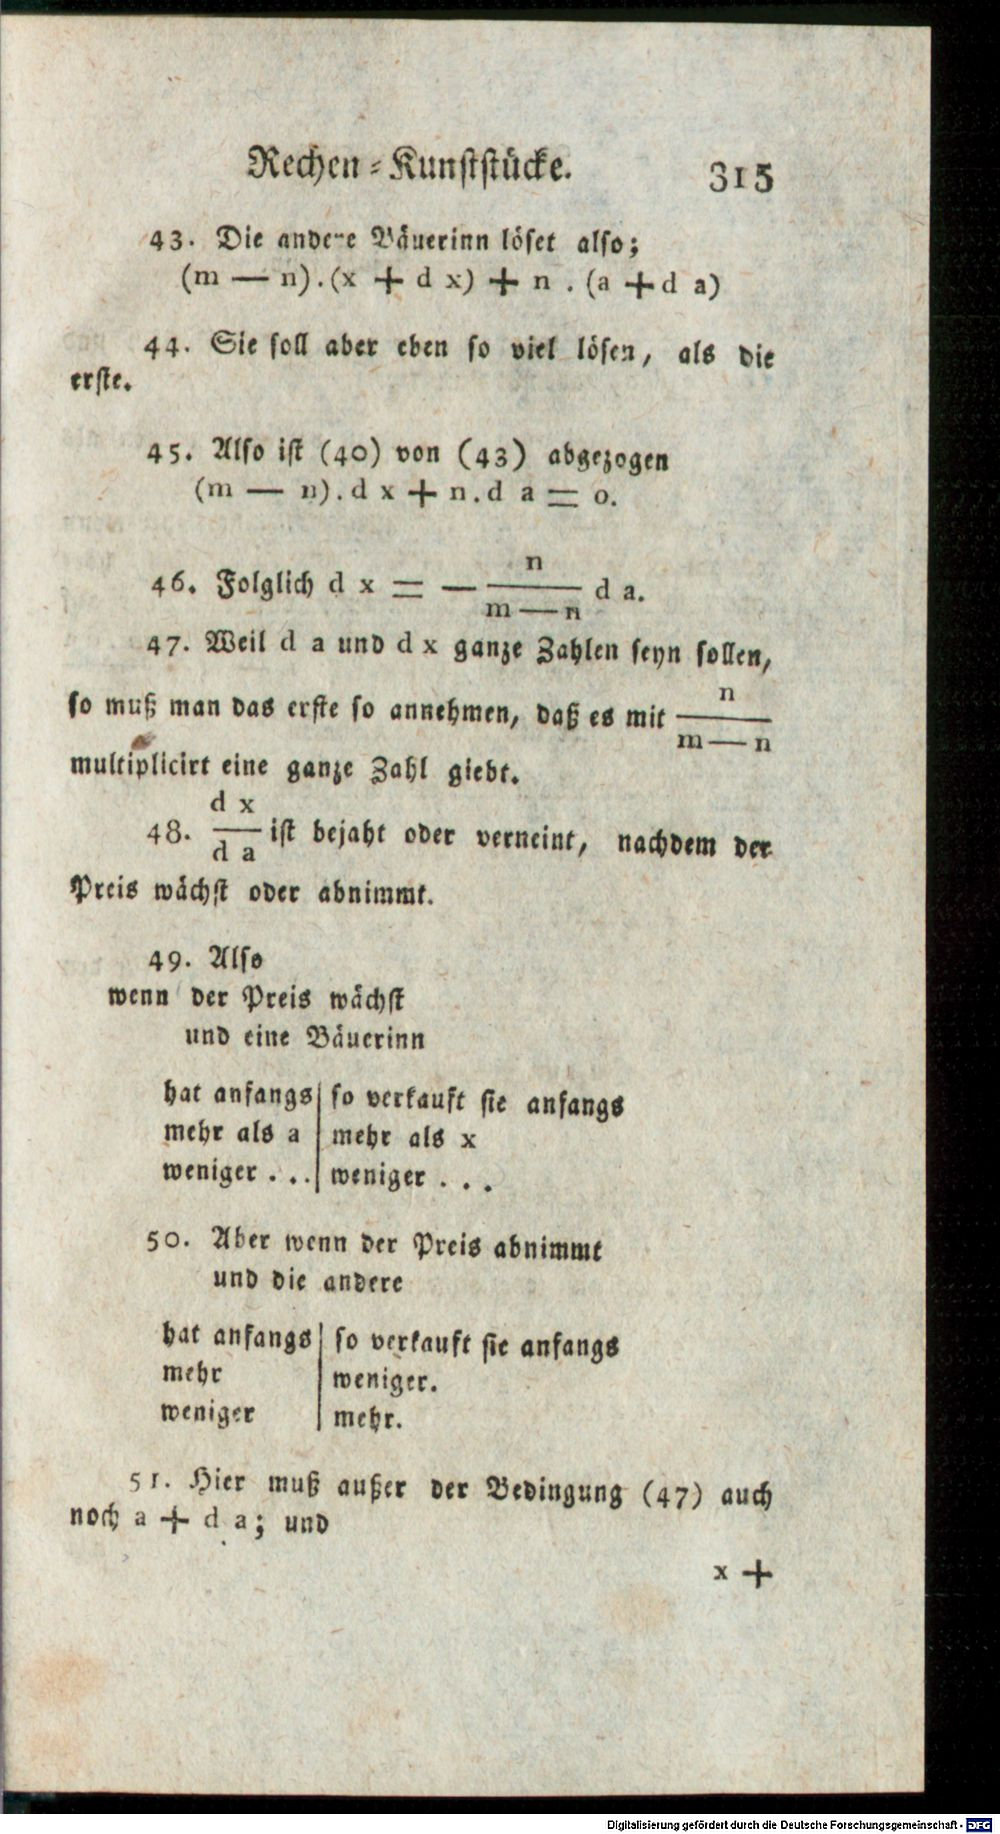 Rechen-Kunststücke. 315
43. Die andere Bäuerinn löset also;
(m — n).(x + d x) + n . (a + d a)
44. Sie soll aber eben so viel lösen, als die
erste.
45. Also ist (40) von (43) abgezogen
(m — n).d x + n.d a = 0.
46. Folglich d x = — n/(m — n) d a.
47. Weil d a und d x ganze Zahlen seyn sollen,
so muß man das erste so annehmen, daß es mit n/(m — n)
multiplicirt eine ganze Zahl giebt.
48. d x/d a ist bejaht oder verneint, nachdem der
Preis wächst oder abnimmt.
49. Also
wenn der Preis wächst
und eine Bäuerinn
hat anfangs | so verkauft sie anfangs
mehr als a | mehr als x
weniger . . . | weniger . . .
50. Aber wenn der Preis abnimmt
und die andere
hat anfangs | so verkauft sie anfangs
mehr | weniger.
weniger | mehr.
51. Hier muß außer der Bedingung (47) auch
noch a + d a; und
x +
Digitalisierung gefördert durch die Deutsche Forschungsgemeinschaft - DFG